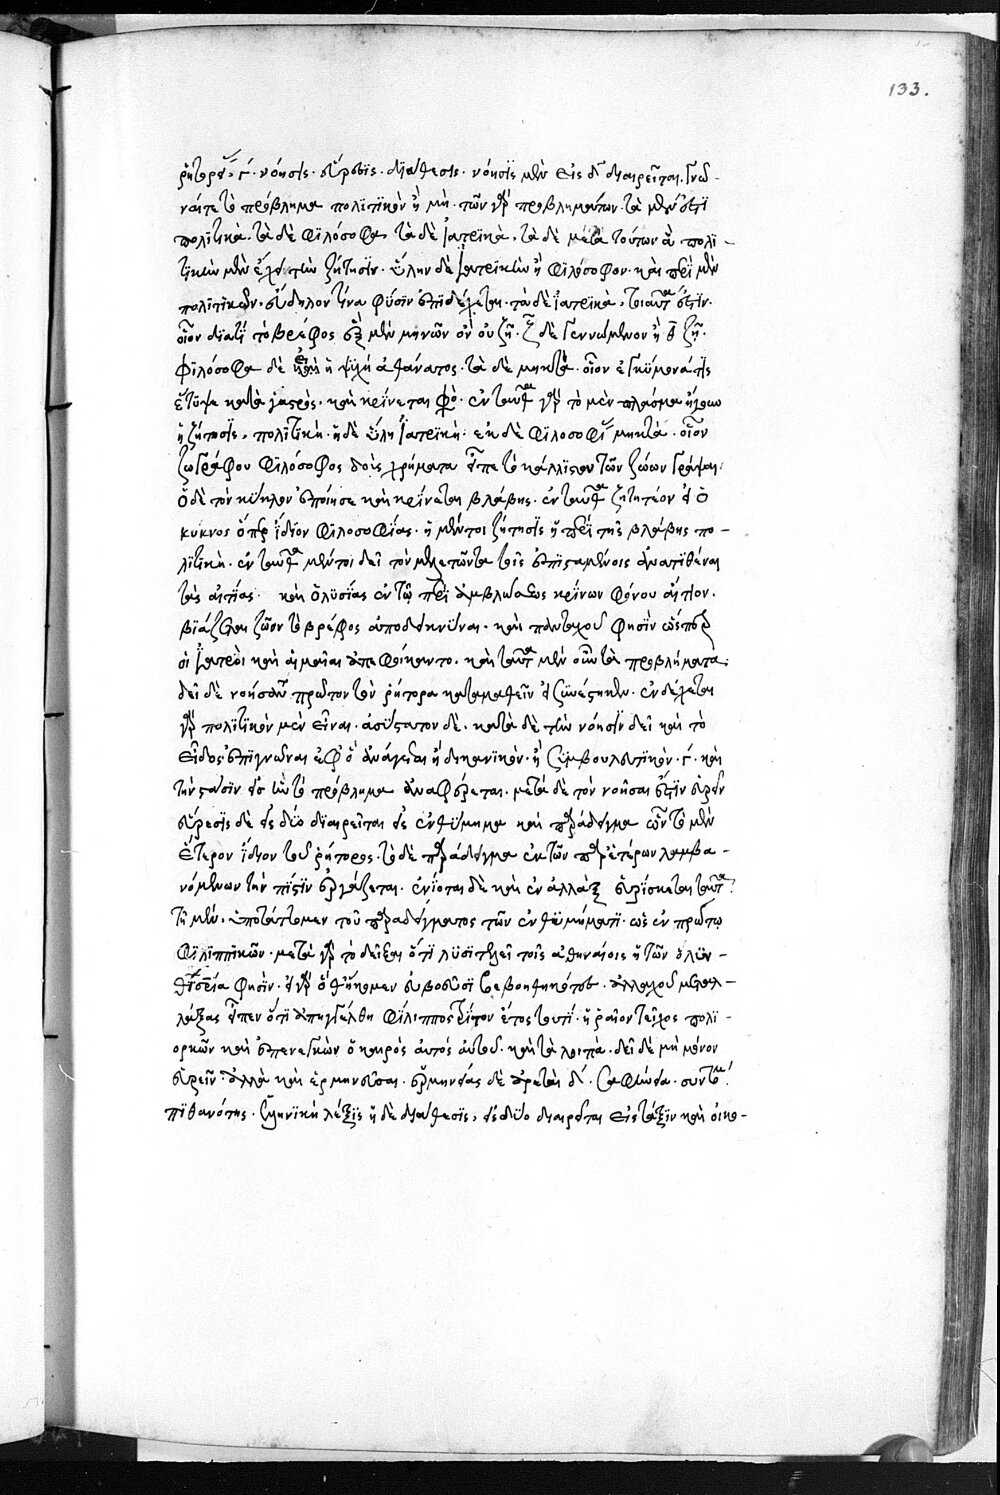 133.
ῥήτορος γ΄. νόησις. εὕρεσις. διάθεσις. νόησις μὲν εἰς δ΄ διαιρεῖται. γνῶ-
ναί τε τὸ πρόβλημα πολιτικὸν ἢ μή. τῶν γὰρ προβλημάτων τὰ μέν ἐστι
πολιτικὰ. τὰ δὲ φιλόσοφα, τὰ δὲ ἰατρικὰ, τὰ δὲ μετὰ τούτων ἃ πολι-
τικὴν μὲν ἔχει τὴν ζήτησιν. ὕλην δὲ ἰατρικὴν ἢ φιλόσοφον. καὶ περὶ μὲν
πολιτικῶν. εὔδηλον τίνα φύσιν ἐπιδέχεται. τὰ δὲ ἰατρικὰ, τοιαῦτα ἐστίν.
οἷον διατί τὸ βρέφος ἓξ μὲν μηνῶν ὂν οὐ ζῇ. ζ δὲ γεννώμενον ἢ θ ζῇ.
φιλόσοφα δὲ εἰ ἡ ψυχὴ ἀθάνατος. τὰ δὲ μηκτὰ. οἷον ἐγκύμονά τις
ἔτυψε κατὰ γαστρὸς. καὶ κρίνεται φό. ἐνταῦθα γὰρ τὸ μὲν πλάσμα ἤγουν
ἡ ζήτησις, πολιτικὴ. ἡ δὲ ὕλη ἰατρικὴ. ἐκ δὲ φιλοσοφί μηκτὰ. οἷον
ζωγράφου φιλόσοφος δοὺς χρήματα εἶπε τὸ κάλλιστον τῶν ζώων γράψαι.
ὁ δὲ τὸν κύκνον ἐποίησε καὶ κρίνεται βλάβης. ἐνταῦθα ζητητέον εἰ ὁ
κύκνος ὅπερ ἴδιον φιλοσοφίας. ἡ μέντοι ζήτησις ἡ περὶ τῆς βλάβης πο-
λιτικὴ. ἐνταῦθα μέντοι δεῖ τὸν μελετῶντα τοῖς ἐπισταμένοις ἀνατιθέναι
τὰς αἰτίας. καὶ ὁ λυσίας ἐν τῷ περὶ ἀμβλώσεως κρίνων φόνου αἴτιον.
βιάζεται ζῶον τὸ βρέφος ἀποδεικνύναι. καὶ πανταχοῦ φησὶν ὥσπερ
οἱ ἰατροὶ καὶ αἱ μαῖαι ἀπεφήναντο. καὶ ταῦτα μὲν οὖν τὰ προβλήματα.
δεῖ δὲ νοήσαι πρῶτον τὸν ῥήτορα καταμαθεῖν εἰ συνέστηκεν. ἐνδέχεται
γὰρ πολιτικὸν μὲν εἶναι. ἀσύστατον δὲ. κατὰ δὲ τὴν νόησιν δεῖ καὶ τὸ
εἶδος ἐπιγνῶναι ἐφ᾽ ὃ ἀνάγεται ἢ δικανικὸν. ἢ συμβουλευτικὸν. γ. καὶ
τὴν στάσιν εἰς ἣν τὸ πρόβλημα ἀναφέρεται. μετὰ δὲ τὸν νοῆσαι ἐστὶν εὑρεῖν
εὕρεσις δὲ εἰς δύο διαιρεῖται εἰς ἐνθύμημα καὶ παράδειγμα ὧν τὸ μὲν
ἕτερον ἴδιον τοῦ ῥήτορος. τὸ δὲ παράδειγμα ἐκ τῶν παρ᾽ ἑτέρων λαμβα-
νόμενων τὴν πίστιν ἐργάζεται. ἐνίοτε δὲ καὶ ἐναλλὰξ εὑρίσκεται ταῦτα
τῇ μὲν. ὑποτάττομεν τοῦ παραδείγματος τῶν ἐνθυμήματι. ὡς ἐν πρώτῳ
φιλιππικῶν. μετὰ γὰρ τὸ δεῖξαι ὅτι λυσιτελεῖ τοῖς ἀθηναίοις ἡ τῶν ὀλυν-
θί φησὶν. εἰ γὰρ ὅθ᾽ ἥκομεν εὐβοεῦσι βεβοηθηκότες. ἀλλαχοῦ μεταλ-
λάξας εἶπεν ὅτι ἀπηγγέλθη φίλιππος τρίτον ἔτος τουτὶ. ἡραῖον τεῖχος πολι-
ορκῶν καὶ ἐπενεγκὼν ὁ καιρὸς αὐτὸς αὐτοῦ. καὶ τὰ λοιπά. δεῖ δὲ μὴ μόνον
εὑρεῖν. ἀλλὰ καὶ ἑρμηνεῦσαι. ἑρμηνείας δὲ ἀρεταὶ δ΄. σαφήνεια. συντομ
πιθανότης. ἑλληνικὴ λέξις ἡ δὲ διάθεσις, εἰς δύο διαιρεῖται εἰς τάξιν καὶ οἰκο-